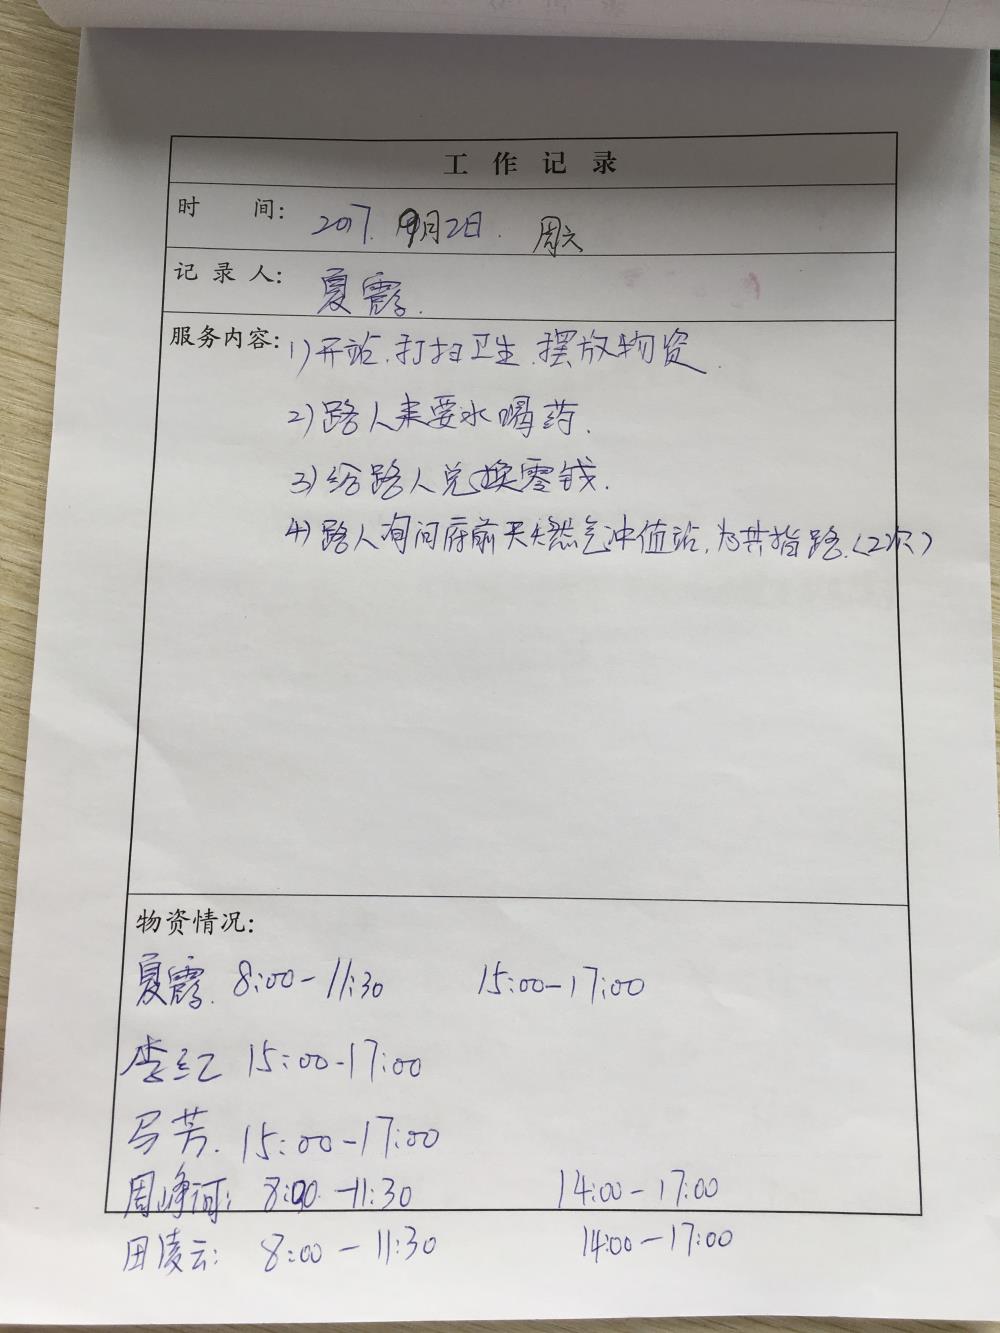 工作记录
时 间: 2017. 9月2日. 周六
记录人: 夏霞.
服务内容: 1)开站.打扫卫生.摆放物资.
2)路人来要水喝药.
3)给路人兑换零钱.
4)路人询问府前天燃气冲值站,为其指路.(2次)
物资情况:
夏霞. 8:00-11:30 15:00-17:00
李红 15:00-17:00
马芳. 15:00-17:00
周峰河: 8:00-11:30 14:00-17:00
田凌云: 8:00-11:30 14:00-17:00